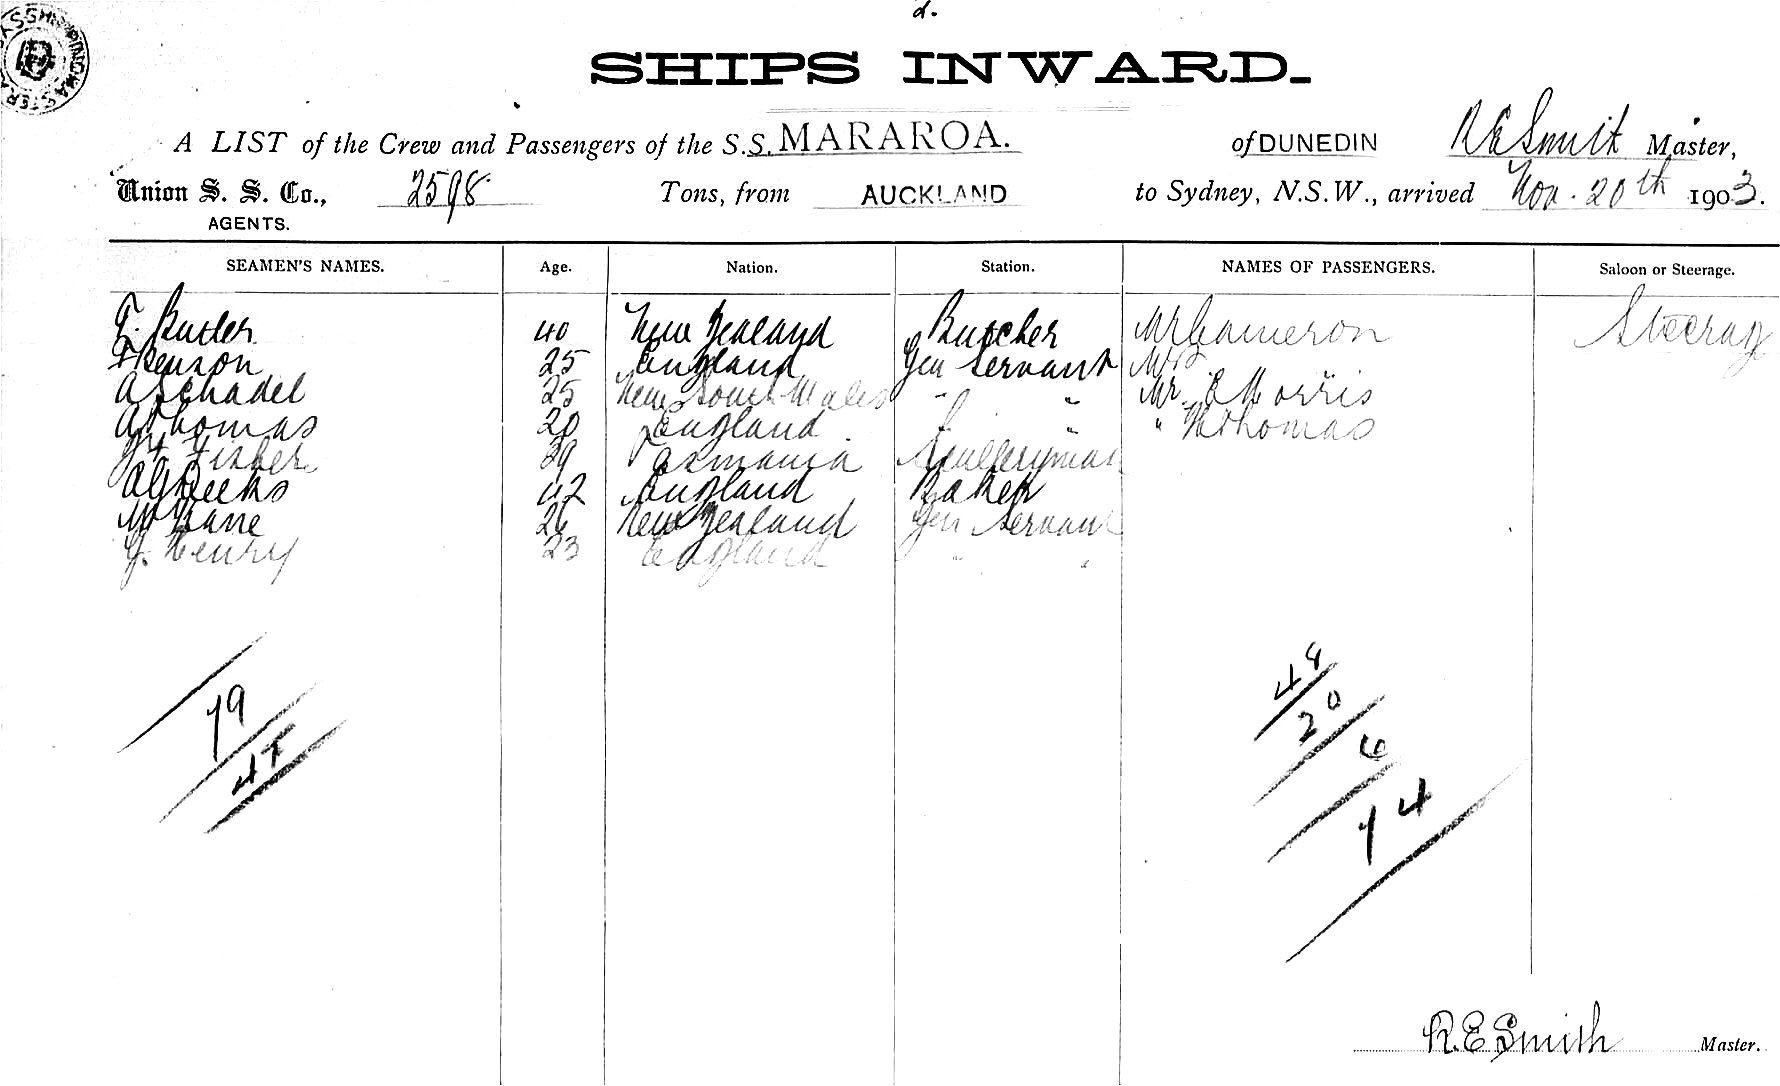 2.
SHIPS INWARD.
A LIST of the Crew and Passengers of the S.S. MARAROA. of DUNEDIN R E Smith Master,
Union S. S. Co., 2598 Tons, from AUCKLAND to Sydney, N.S.W., arrived Nov. 20th 1903.
AGENTS.
SEAMEN'S NAMES. Age. Nation. Station. NAMES OF PASSENGERS. Saloon or Steerage.
Butler 40 New Zealand Butcher Mr Cameron Steerag
25 England Gen Servant Mrs
A Schadel 25 New South Wales " " Mr. E Morris
A Thomas 20 England " " Thomas
Fisher 39 Tasmania Sculleryman
42 England Baker
26 New Zealand Gen Servant
J. Henry 23 England " "
79
48
20
6
74
R.E Smith Master.